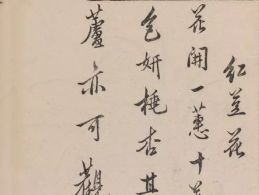 紅荳花
花開一蕙十
色妍桃杏其
蘆亦可觀